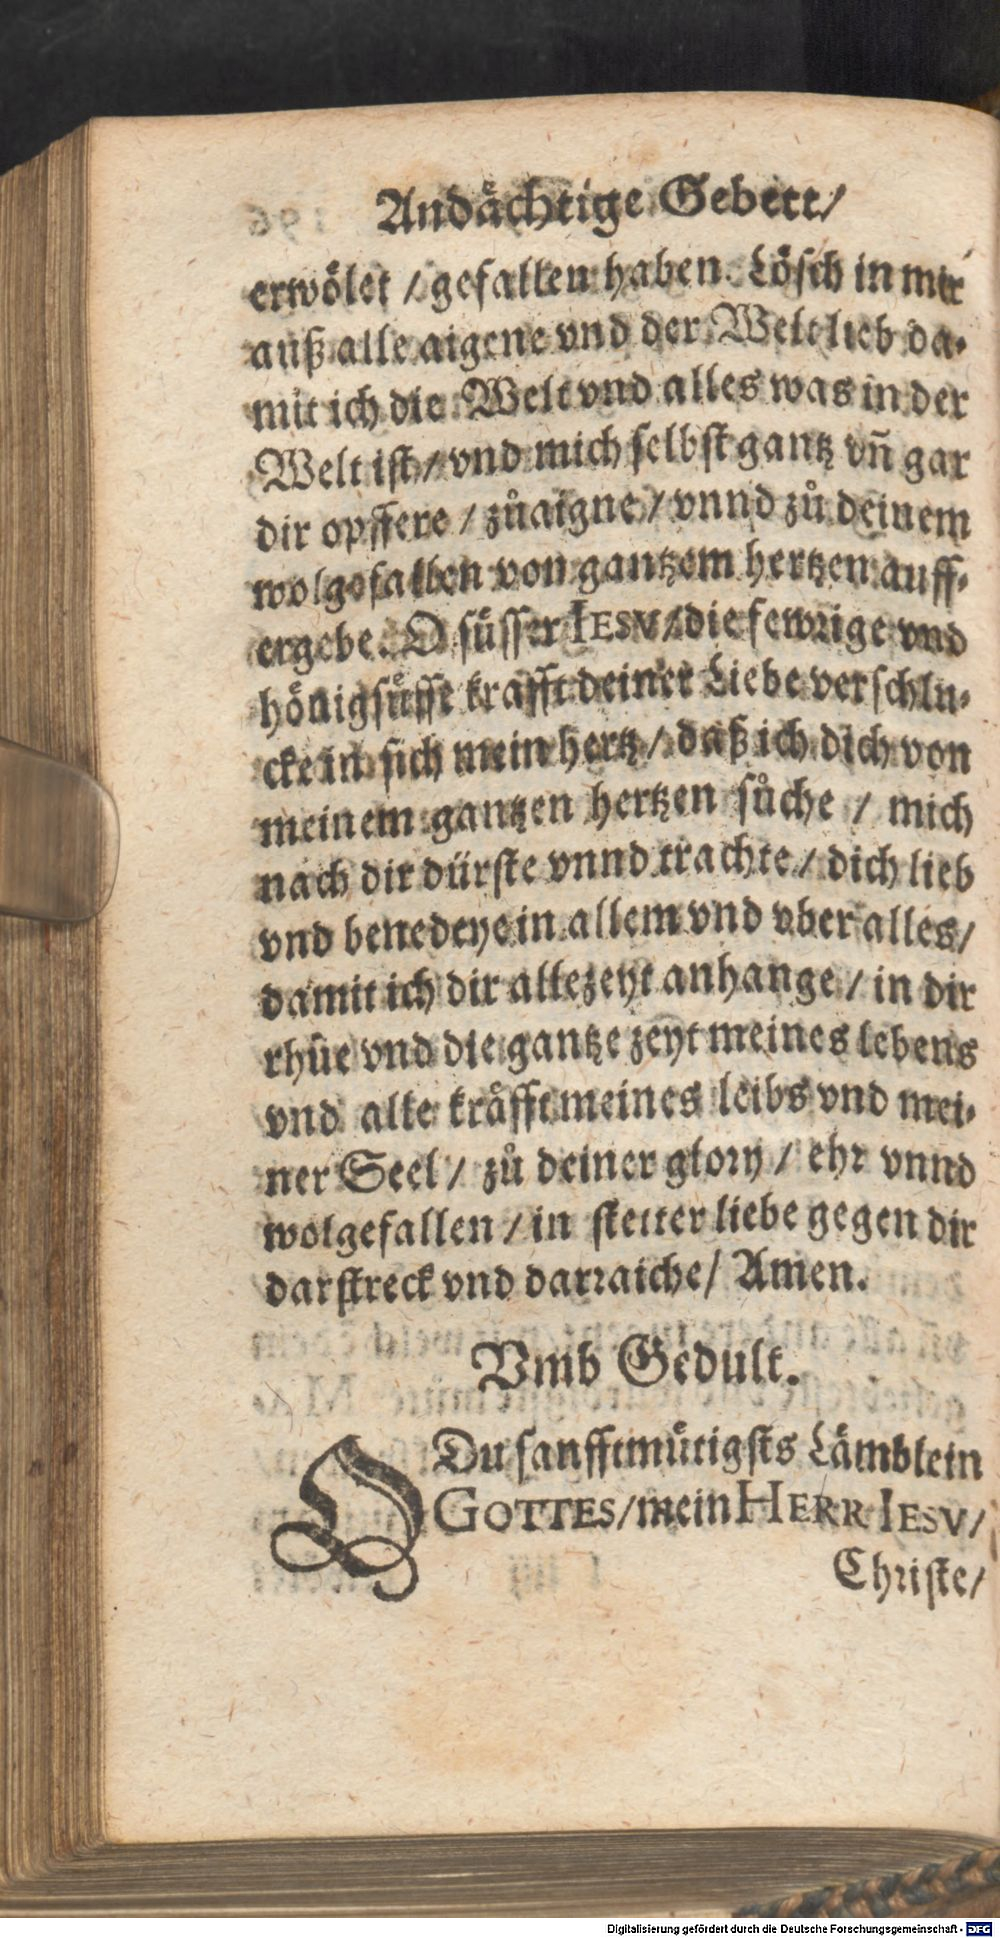 Andächtige Gebett/
erwölet / gefallen haben. Lösch in mir
auß alle aigene vnd der Welt lieb da-
mit ich die Welt vnd alles was in der
Welt ist / vnd mich selbst gantz vñ gar
dir opffere / zůaigne / vnnd zů deinem
wolgefallen von gantzem hertzen auff-
ergebe. O süsser IESV / die fewrige vnd
hönigsüsse krafft deiner Liebe verschlu-
cke in sich mein hertz / daß ich dich von
meinem gantzen hertzen sůche / mich
nach dir dürste vnnd trachte / dich lieb
vnd benedeye in allem vnd vber alles /
damit ich dir allezeyt anhange / in dir
rhůe vnd die gantze zeyt meines lebens
vnd alle kräfft meines leibs vnd mei-
ner Seel / zů deiner glory / ehr vnnd
wolgefallen / in stetter liebe gegen dir
darstreck vnd darraiche / Amen.
Vmb Gedult.
O Du sanfftmütigsts Lämblein
GOTTES / mein HERR IESV /
Christe /
Digitalisierung gefördert durch die Deutsche Forschungsgemeinschaft - DFG